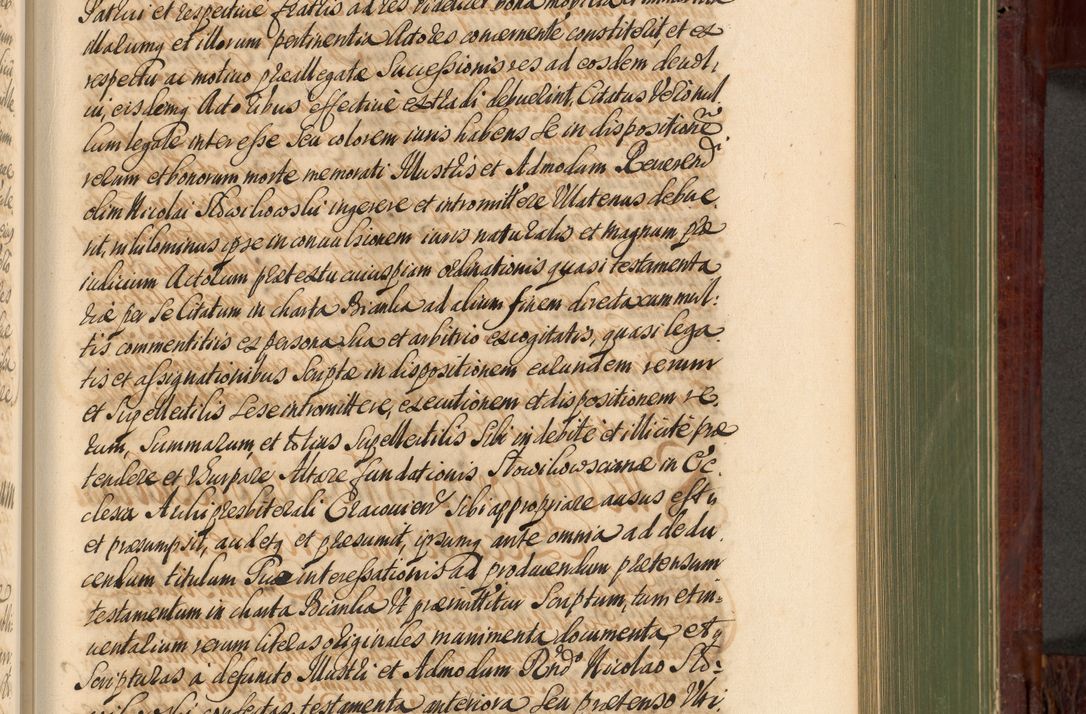 Patrui et respective fratris ad res videlicet bona mobilia et immobilia
illarumq et illorum pertinentia Actores concernente constiterit, et ex
respectu ac motivo præallegatæ Successionis res ad eosdem devol,
vi, eisdemq Actoribus effective extradi debuerint, Citatus vero nul,
lum legale interesse seu colorem iuris habens se in dispositionē
rerum et bonorum morte memorati Illustris et Admodum Reverendi
olim Nicolai Słowikowski ingerere et intromittere Ullatenus debue,
rit, nihilominus ipse in convulsionem iuris naturalis et magnum præ
iudicium Actorum prætextu cuiuspiam ordinationis quasi testamenta
riæ per se Citatum in charta Bianka ad alium finem directa cum mul:
tis commentitiis ex persona sua et arbitrio excogitatis, quasi lega
tis et assignationibus Scriptæ in dispositionem earundem rerum
et Supellectilis sese intromittere, executionem et dispositionem re,
rum, Summarum, et totius Supellectilis Sibi indebite et illicite præ
tendere et Usurpare Altare fundationis Słowikowscianæ in Ec,
clesia Archipresbiterali Cracovien Sibi appropriare ausus est
et præsumpsit, audetq et præsumit, ipsumq ante omnia ad dedu,
cendum titulum Suæ interessationis ad producendum prætensum
testamentum in charta Bianka Ut præmittitur Scriptum, tum et in,
ventarium rerum literas originales munimenta documenta, et
Scripturas à defuncto Illustri et Admodum Rndo Nicolao Sło:
wikowski confectas, testamenta anteriora seu prætenso Ulti